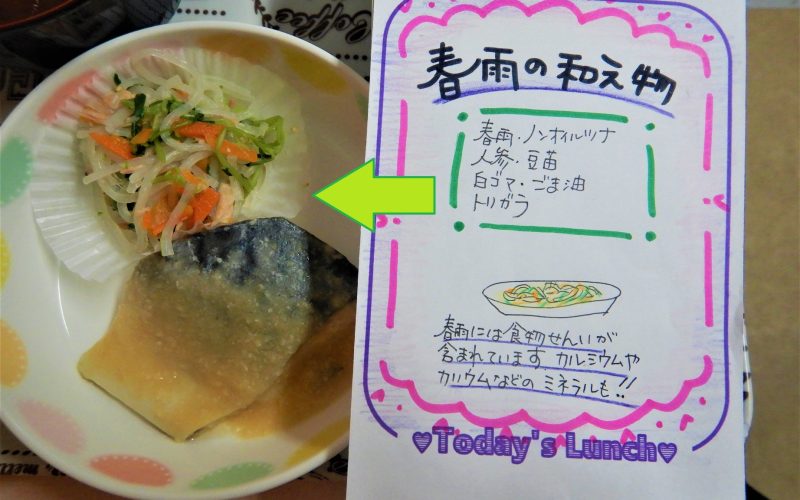 Coffee
春雨の和え物
春雨・ノンオイルツナ
人参・豆苗
白ゴマ・ごま油
トリガラ
春雨には食物せんいが
含まれています。カルシウムや
カリウムなどの ミネラルも!!
Today's Lunch